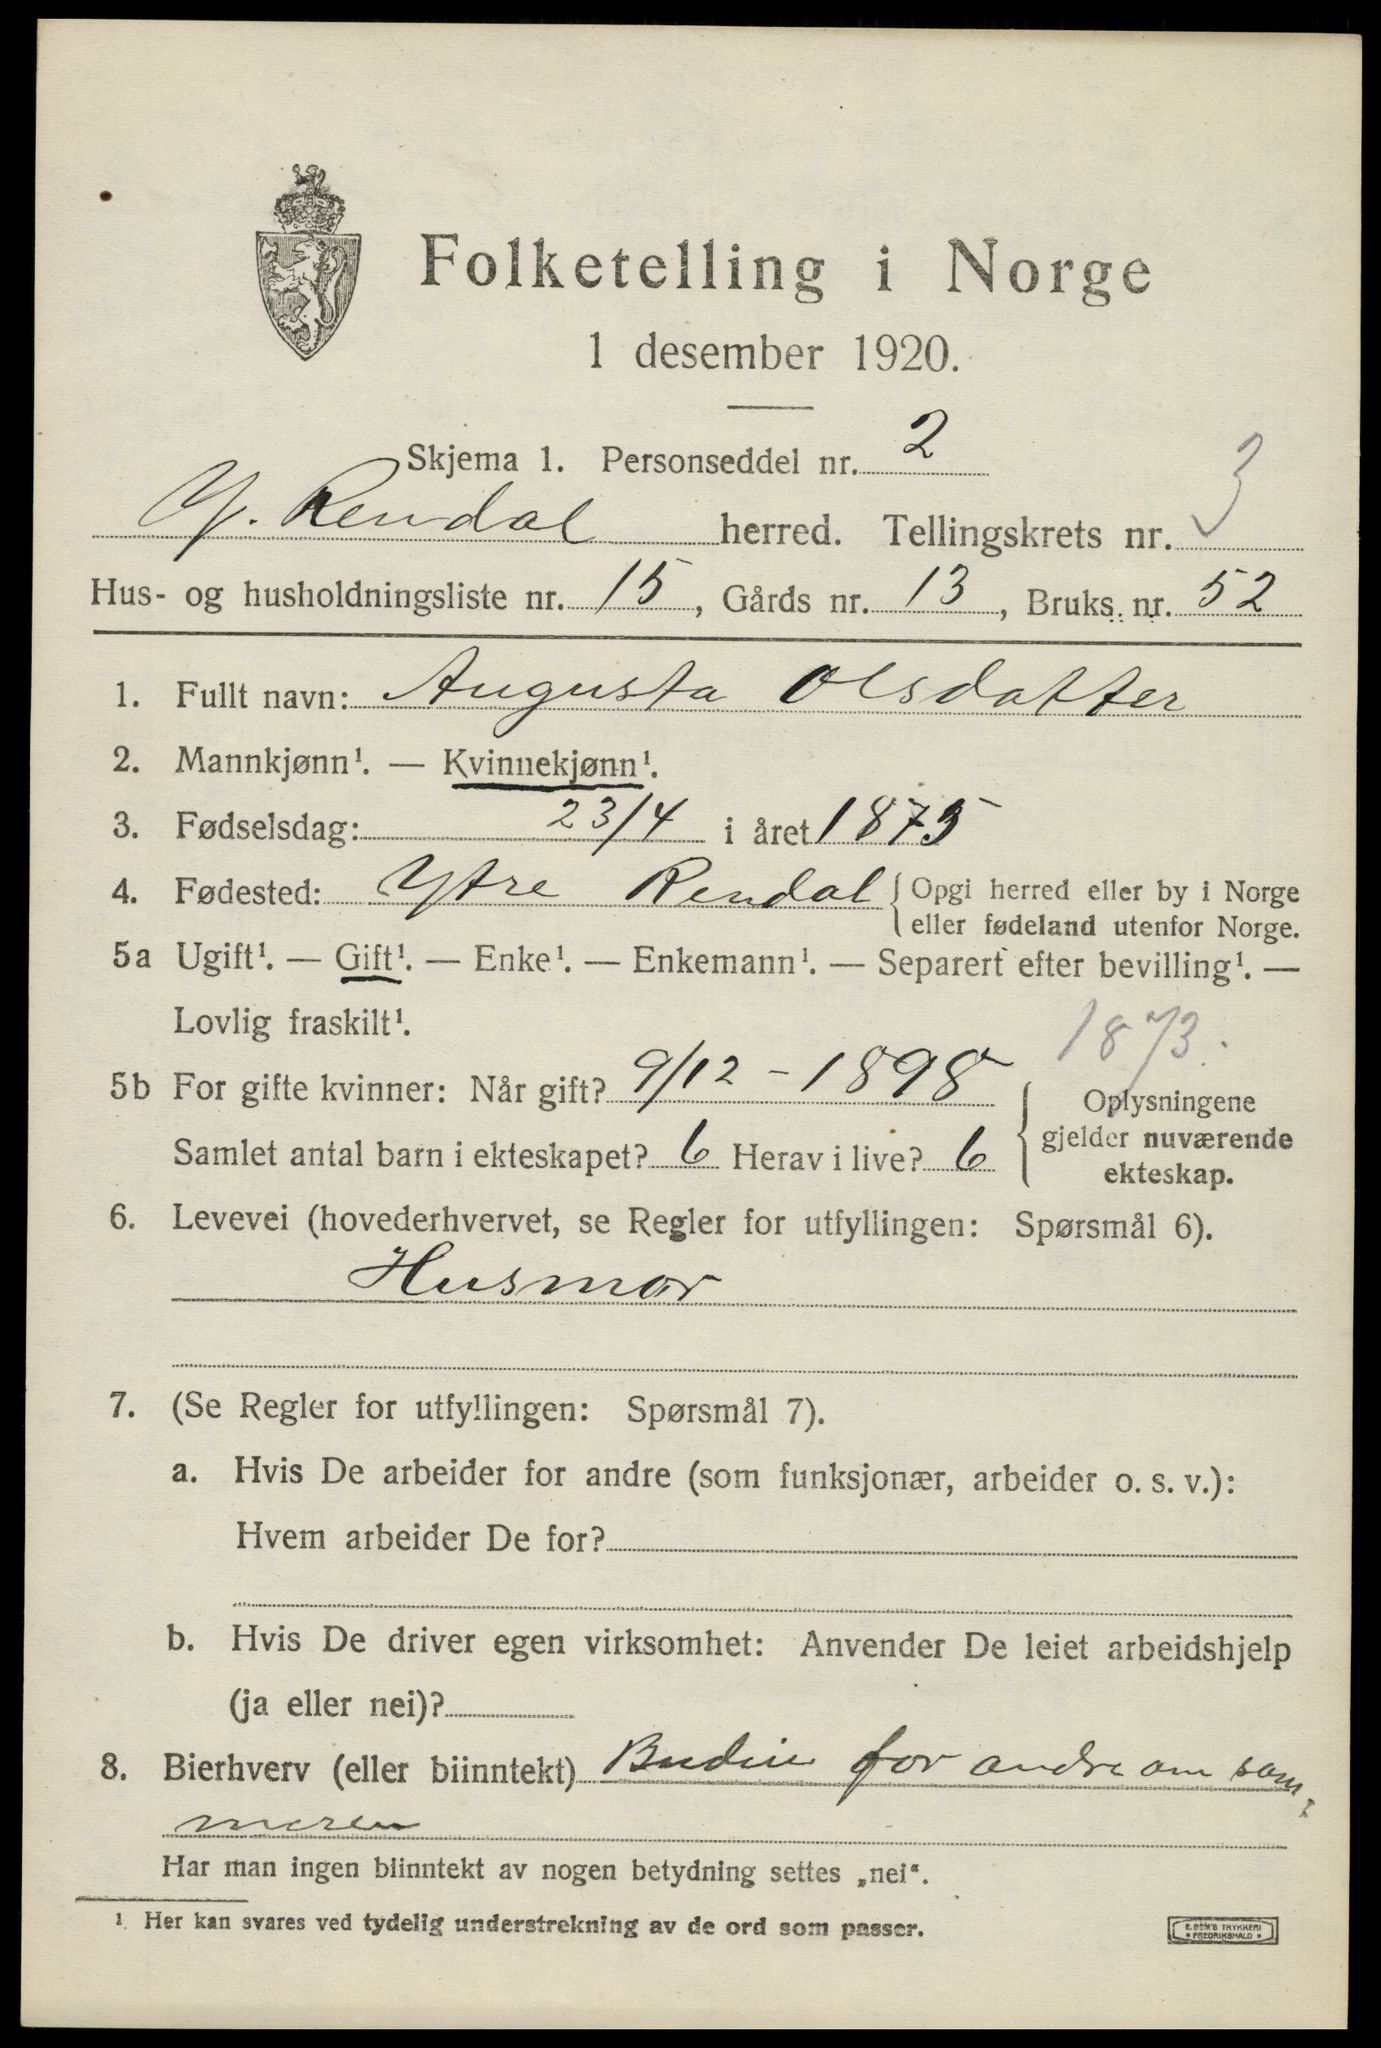 Folketelling i Norge
1 desember 1920.
Skjema 1. Personseddel nr. 2
Y. Rendal herred. Tellingskrets nr. 3
Hus- og husholdningsliste nr. 15, Gårds nr. 13, Bruks. nr. 52
1. Fullt navn: Augusta Olsdatter
2. Mannkjønn¹. — Kvinnekjønn¹.
3. Fødselsdag: 23/4 i året 1873
4. Fødested: Ytre Rendal { Opgi herred eller by i Norge
eller fødeland utenfor Norge.
5a Ugift¹. — Gift¹. — Enke¹. — Enkemann¹. — Separert efter bevilling¹. —
Lovlig fraskilt¹.
1873.
5b For gifte kvinner: Når gift? 9/12 - 1898 { Oplysningene
gjelder nuværende
Samlet antal barn i ekteskapet? 6 Herav i live? 6
ekteskap.
6. Levevei (hovederhvervet, se Regler for utfyllingen: Spørsmål 6).
Husmor
7. (Se Regler for utfyllingen: Spørsmål 7).
a. Hvis De arbeider for andre (som funksjonær, arbeider o. s. v.):
Hvem arbeider De for?
b. Hvis De driver egen virksomhet: Anvender De leiet arbeidshjelp
(ja eller nei)?
8. Bierhverv (eller biinntekt) Budeie for andre om som-
meren
Har man ingen biinntekt av nogen betydning settes „nei“.
¹ Her kan svares ved tydelig understrekning av de ord som passer.
E. SEM'S TRYKKERI
FREDRIKSHALD